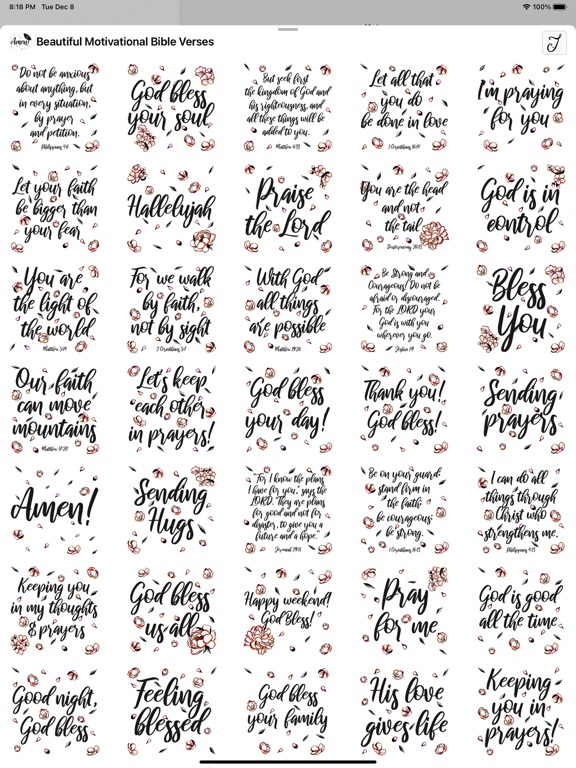 8:18 PM Tue Dec 8
100%
Amen!
Beautiful Motivational Bible Verses
Do not be anxious
about anything, but
in every situation,
by prayer
and petition.
Philippians 4:6
God bless
your soul
But seek first
the kingdom of God and
his righteousness, and
all these things will be
added to you.
Matthew 6:33
Let all that
you do
be done in love
1 Corinthians 16:14
I'm praying
for you
Let your faith
be bigger than
your fear
Hallelujah
Praise
the Lord
You are the head
and not
the tail
Deuteronomy 28:13
God is in
control
You are
the light of
the world
Matthew 5:14
For we walk
by faith,
not by sight
2 Corinthians 5:7
With God
all things
are possible
Matthew 19:26
Be Strong and
Courageous! Do not be
afraid or discouraged.
For the LORD your
God is with you
wherever you go.
Joshua 1:9
Bless
You
Our faith
can move
mountains
Matthew 17:20
Let's keep
each other
in prayers!
God bless
your day!
Thank you!
God bless!
Sending
prayers
Amen!
Sending
Hugs
"For I know the plans
I have for you," says the
LORD. They are plans
for good and not for
disaster, to give you a
future and a hope."
Jeremiah 29:11
Be on your guard;
stand firm in
the faith;
be courageous;
be strong.
1 Corinthians 16:13
I can do all
things through
Christ who
strengthens me.
Philippians 4:13
Keeping you
in my thoughts
& prayers
God bless
us all
Happy weekend!
God Bless!
Pray
for me
God is good
all the time
Good night,
God bless
Feeling
blessed
God bless
your family
His love
gives life
Keeping
you in
prayers!